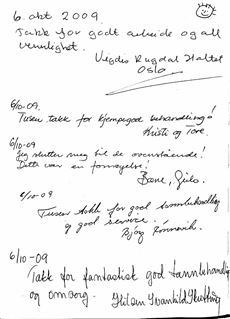 6. okt 2009.
Takk for godt arbeide og all
vennlighet.
Vigdis Rugdal
Oslo
6/10-09.
Tusen takk for kjempegod behandling!
Kristi og Tore.
6/10-09
Jeg slutter meg til de ovenstående!
Dette var en fornøyelse!
6/10-09
Tusen takk for god tannbehandling
og god service.
Bjørg
6/10-09
Takk for fantastisk god tannbehandling
og omsorg. Hilsen